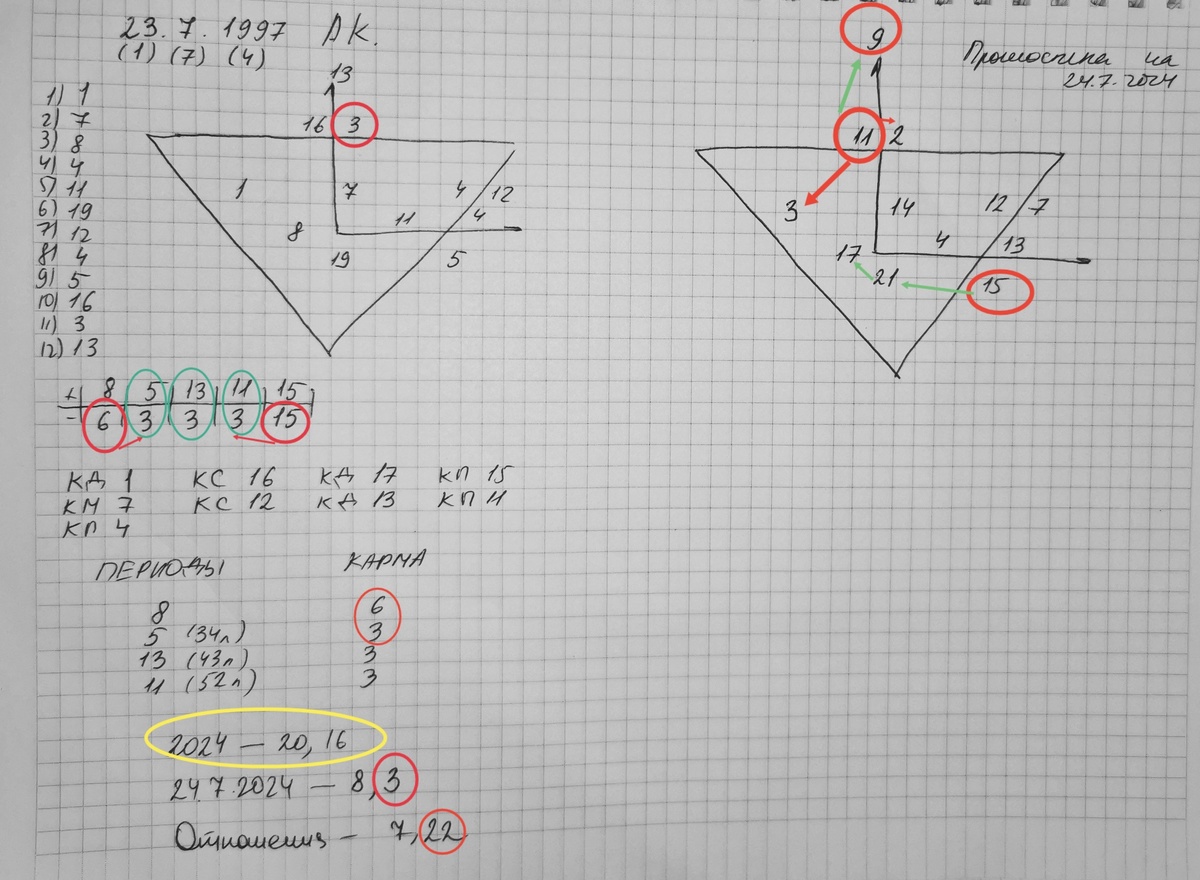 23.7.1997 АК.
(1) (7) (4)
1) 1
2) 7
3) 8
4) 4
5) 11
6) 19
7) 12
8) 4
9) 5
10) 16
11) 3
12) 13
13
16 3
1 7 4 12
8 11 4
19 5
+ 8 5 13 11 15
- 6 3 3 3 15
КД 1 КС 16 КД 17 КП 15
КМ 7 КС 12 КД 13 КП 11
КП 4
ПЕРИОДЫ КАРМА
8 6
5 (34л) 3
13 (43л) 3
11 (52л) 3
2024 — 20, 16
24.7.2024 — 8, 3
Отношения — 7, 22
Прогностика на
24.7.2024
9
11 2
3 14 12 7
17 4 13
21 15